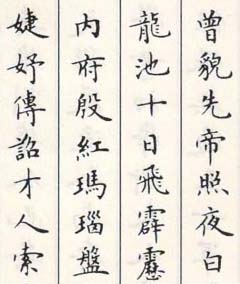 曾貌先帝照夜白
龍池十日飛霹靂
內府殷紅瑪瑙盤
婕妤傳詔才人索